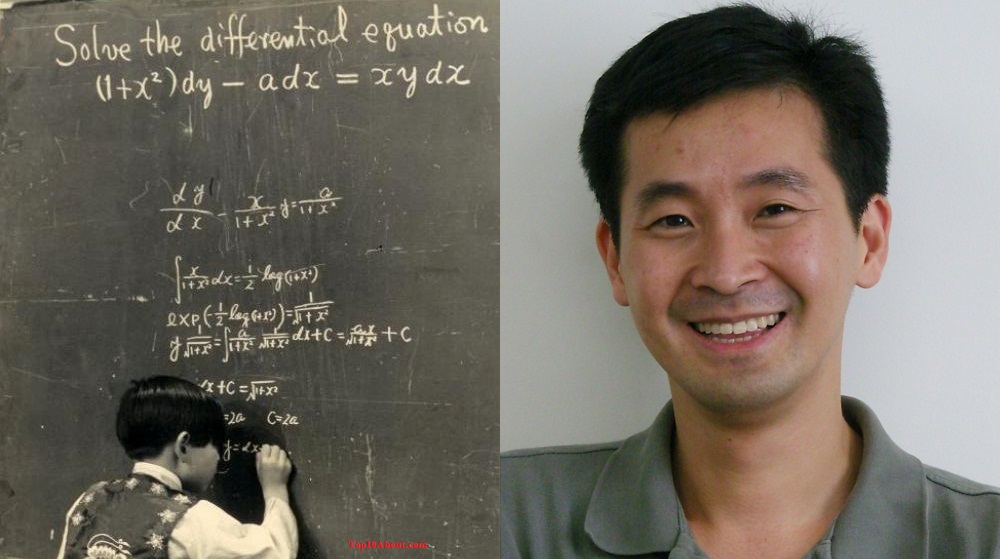 Solve the differential equation
(1+x²)dy − adx = xydx
dy/dx − x/(1+x²) y = a/(1+x²)
∫ x/(1+x²) dx = 1/2 log(1+x²)
exp(−1/2 log(1+x²)) = 1/√(1+x²)
y 1/√(1+x²) = ∫ a/(1+x²) 1/√(1+x²) dx + C = ax/√(1+x²) + C
x + C = √(1+x²)
=2a C=2a
y=
Top10About.com